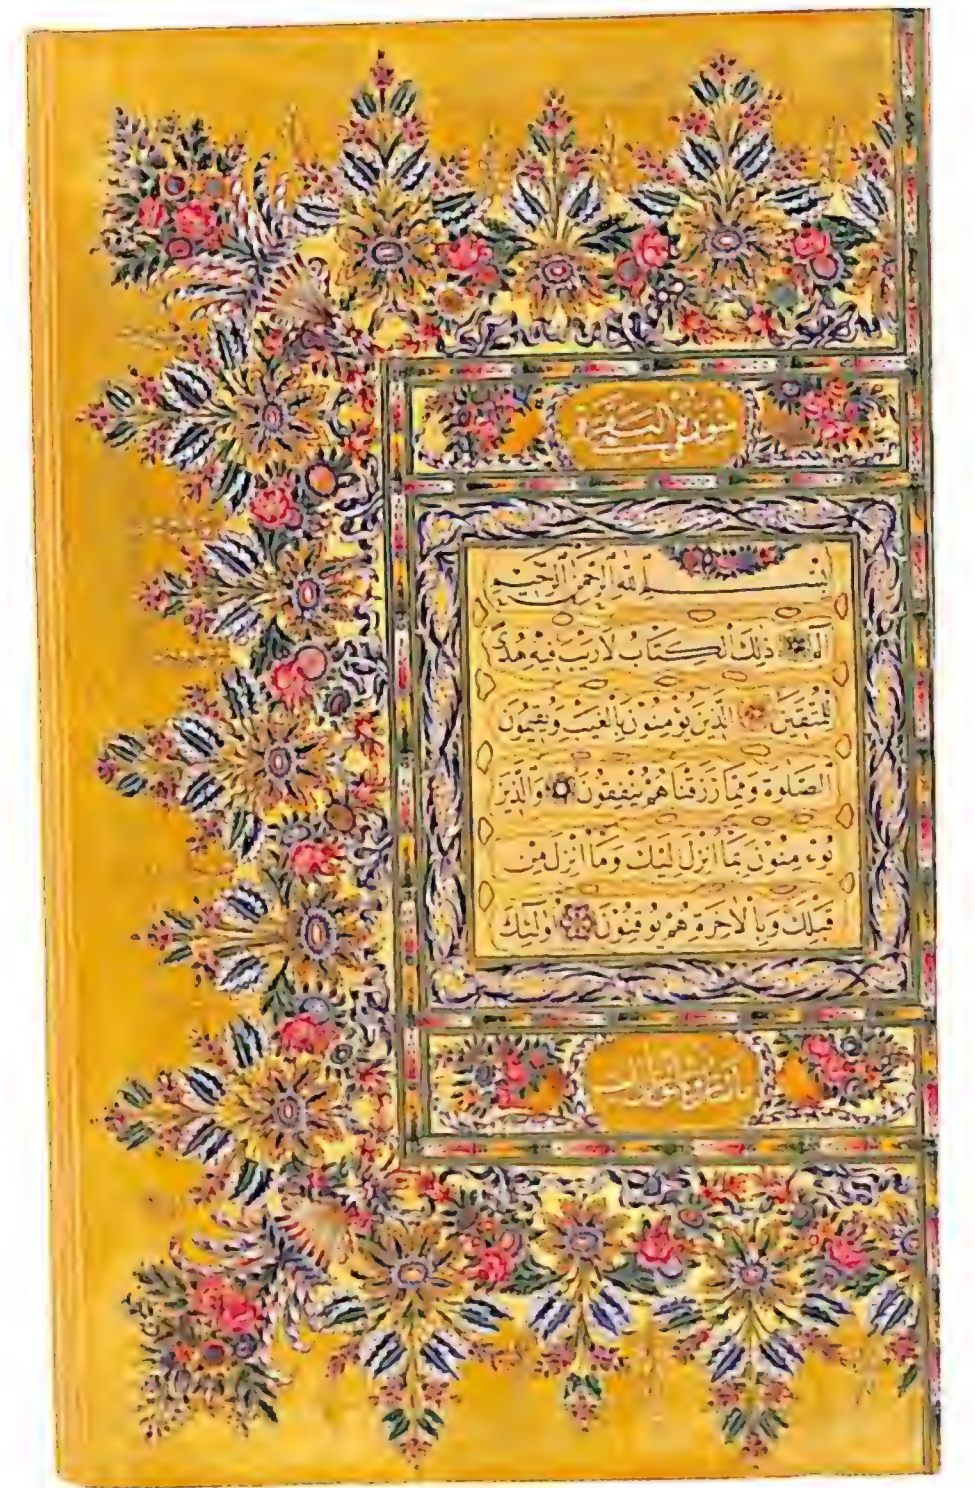 سورة البقرة
بسم الله الرحمن الرحيم
الٓمٓ ذٰلِكَ الْكِتَابُ لَا رَيْبَ فِيهِ هُدًى
لِلْمُتَّقِينَ الَّذِينَ يُؤْمِنُونَ بِالْغَيْبِ وَيُقِيمُونَ
الصَّلٰوةَ وَمِمَّا رَزَقْنَاهُمْ يُنْفِقُونَ وَالَّذِينَ
يُؤْمِنُونَ بِمَا أُنْزِلَ إِلَيْكَ وَمَا أُنْزِلَ مِنْ
قَبْلِكَ وَبِالْاٰخِرَةِ هُمْ يُوقِنُونَ أُولٰئِكَ